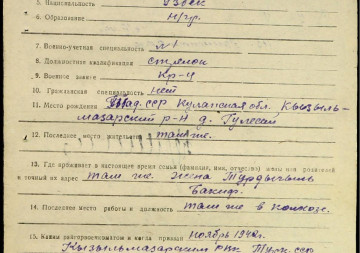 5. Национальность Узбек
6. Образование н/гр.
7. Военно-учетная специальность №1
8. Должностная квалификация стрелок
9. Военное звание Кр-ц
10. Гражданская специальность нет
11. Место рождения Тад. ССР Кулябская обл. Кызыль-
мазарский р-н д. Гулесай
12. Последнее место жительства там же.
13. Где проживает в настоящее время семья (фамилия, имя, отчество) жены или родителей
и точный их адрес там же жена Турдычыль
Бакиф.
14. Последнее место работы и должность там же в колхозе.
15. Каким райгорвоенкоматом и когда призван ноябрь 1942 г.
Кызылмазарским РВК Тадж. ССР